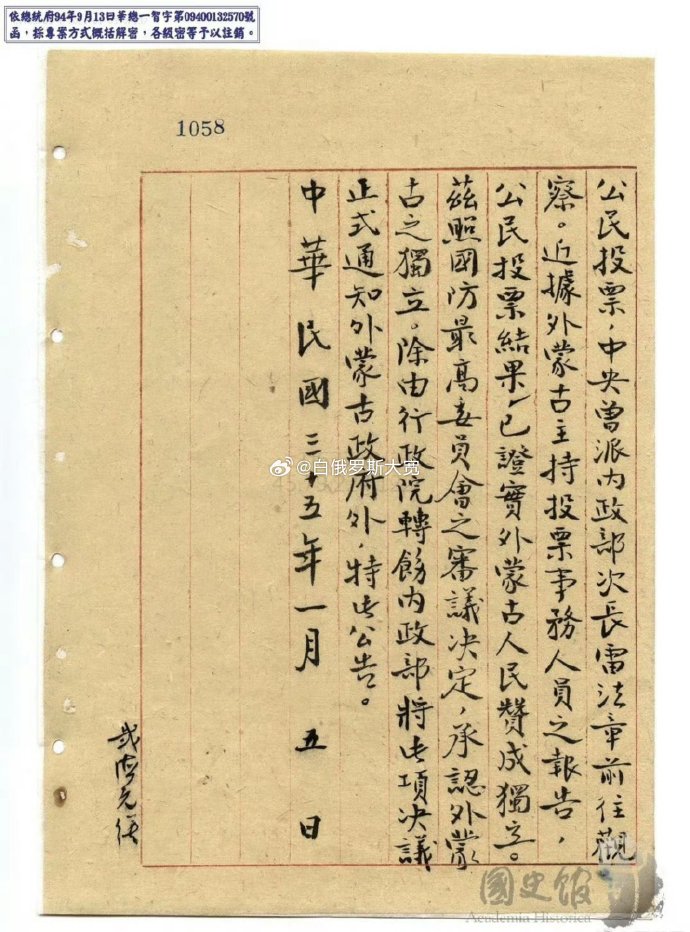 依總統府94年9月13日華總一智字第09400132570號
函，採專案方式概括解密，各級密等予以註銷。
1058
公民投票，中央曾派內政部次長雷法章前往觀
察。近據外蒙古主持投票事務人員之報告，
公民投票結果，已證實外蒙古人民贊成獨立。
茲照國防最高委員會之審議決定，承認外蒙
古之獨立。除由行政院轉飭內政部將此項決議
正式通知外蒙古政府外，特此公告。
中華民國三十五年一月 五 日
@白俄罗斯大宽
國史館
Academia Historica